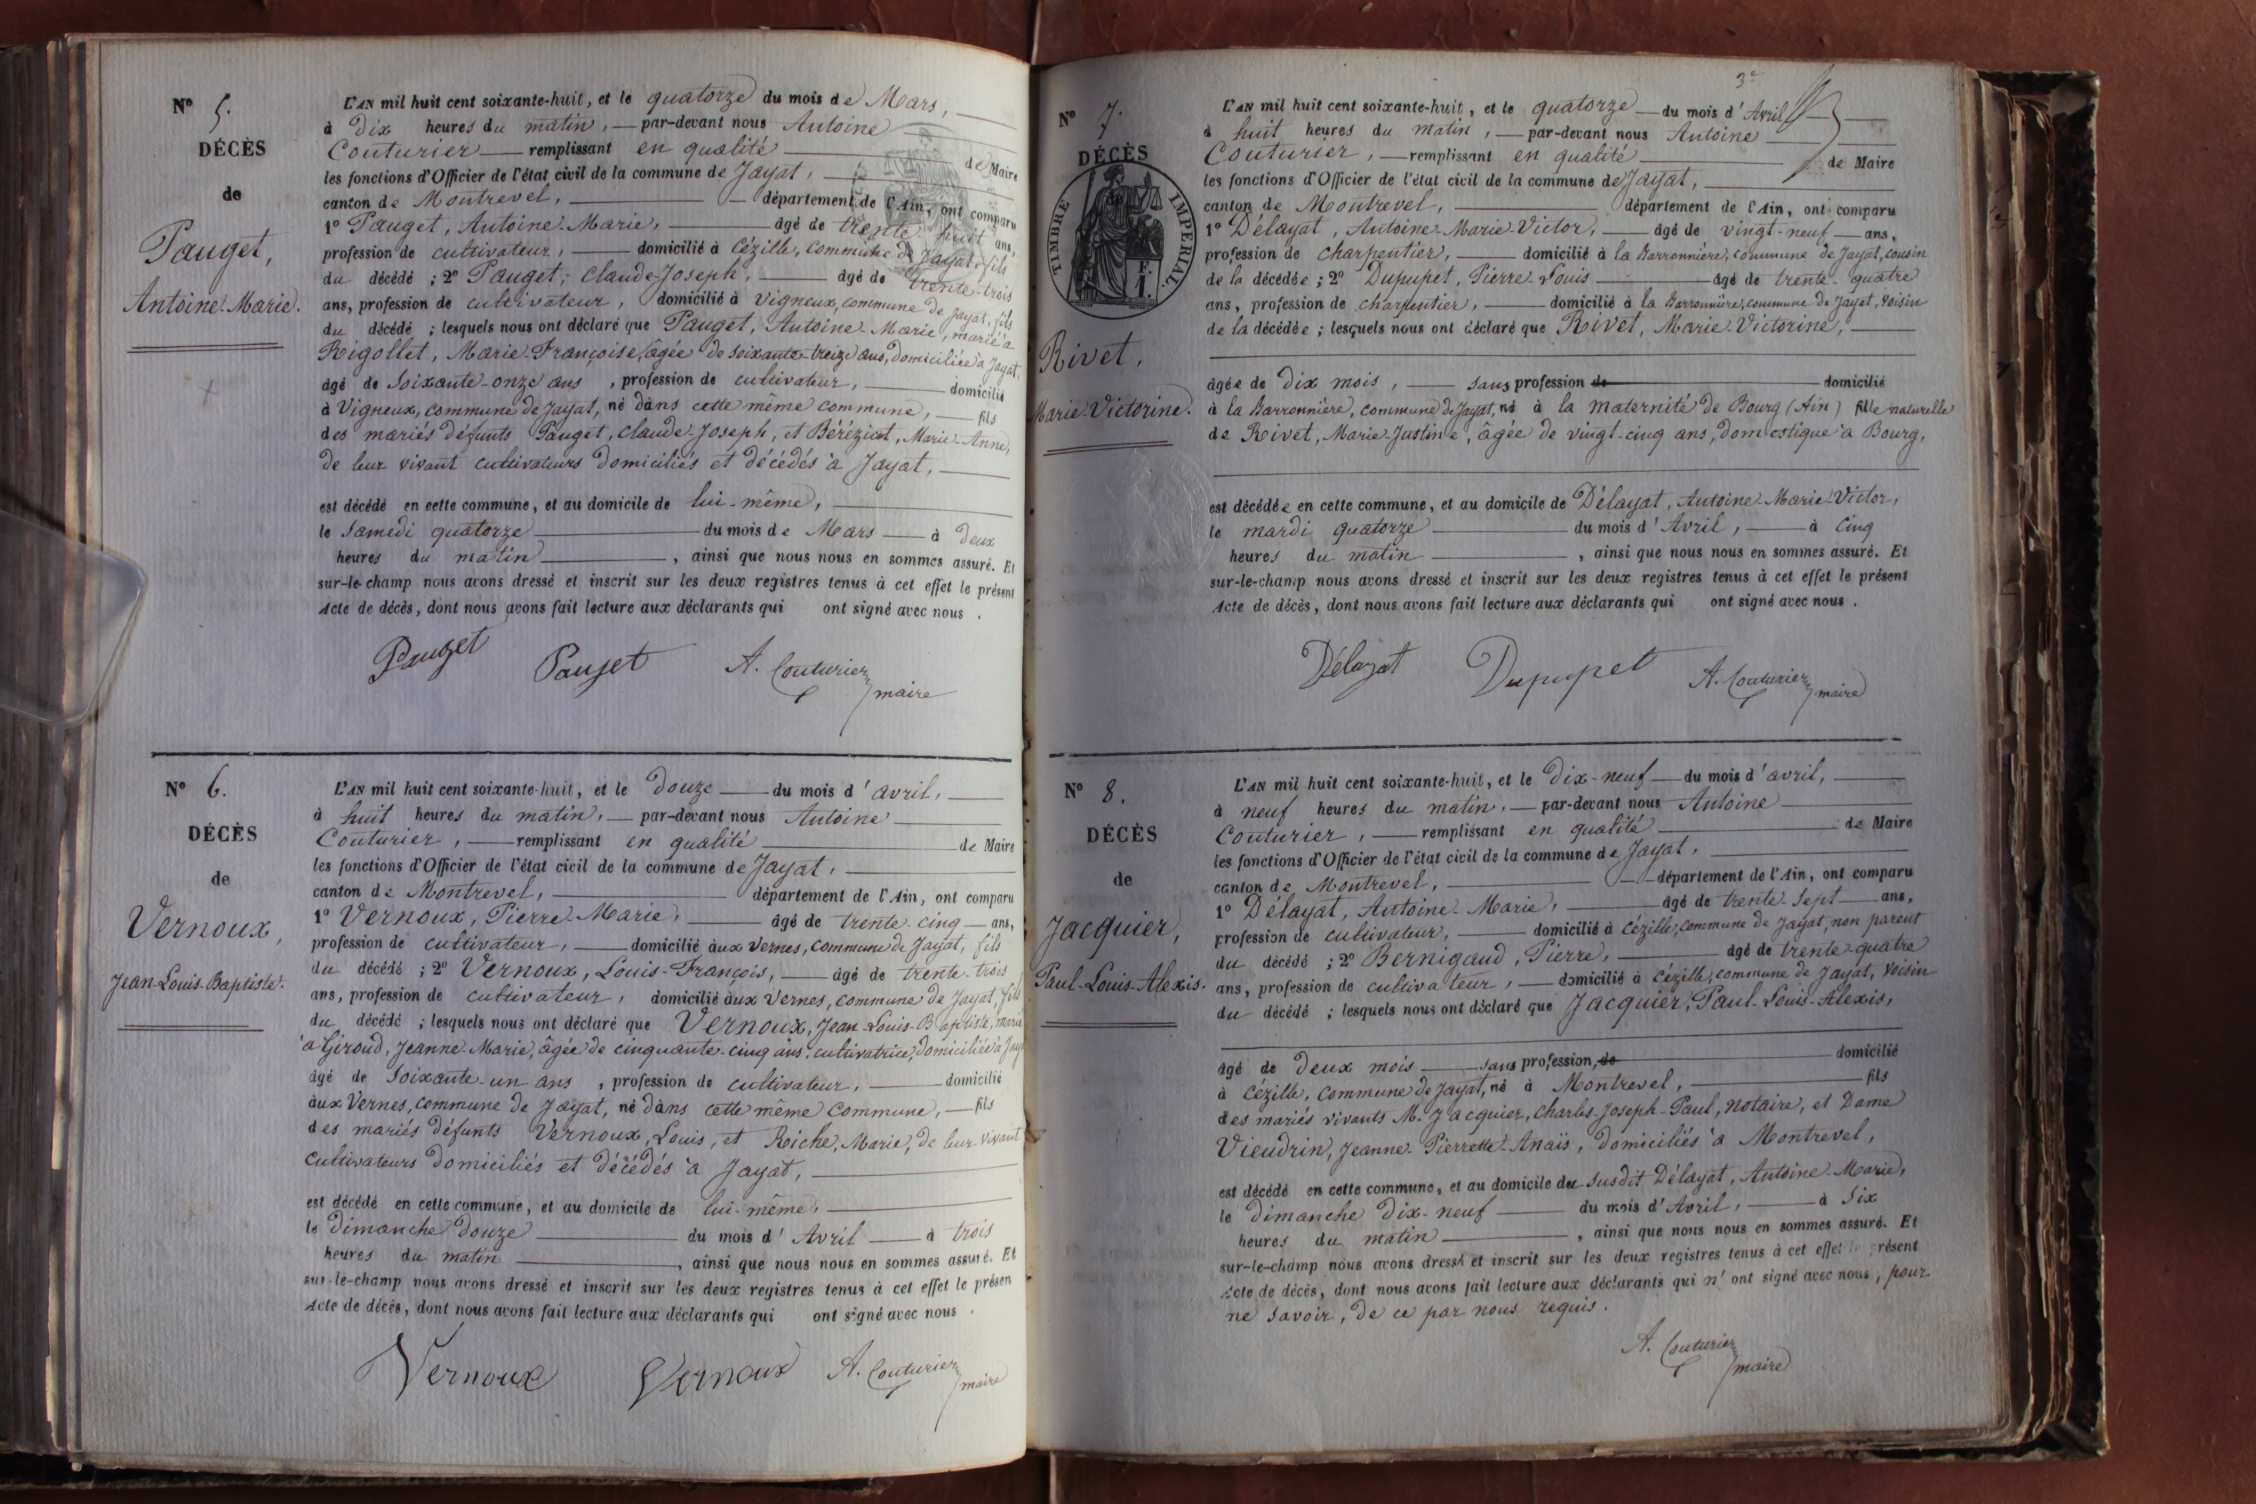 N° 5.
DÉCÈS
de
Pauget,
Antoine-Marie.
L'AN mil huit cent soixante-huit, et le quatorze du mois de Mars,
à dix heures du matin, par-devant nous Antoine
Couturier remplissant en qualité de Maire
les fonctions d'Officier de l'état civil de la commune de Jayat,
canton de Montrevel, département de l'Ain, ont comparu
1° Pauget, Antoine-Marie, âgé de trente-huit ans,
profession de cultivateur, domicilié à Cézille, commune de Jayat, fils
du décédé ; 2° Pauget, Claude-Joseph, âgé de trente-trois
ans, profession de cultivateur, domicilié à Vigneux, commune de Jayat, fils
du décédé ; lesquels nous ont déclaré que Pauget, Antoine-Marie, marié à
Rigollet, Marie-Françoise, âgée de soixante-treize ans, domiciliée à Jayat,
âgé de soixante-onze ans, profession de cultivateur, domicilié
à Vigneux, commune de Jayat, né dans cette même commune, fils
des mariés défunts Pauget, Claude-Joseph, et Béréziat, Marie-Anne,
de leur vivant cultivateurs domiciliés et décédés à Jayat,
est décédé en cette commune, et au domicile de lui-même,
le samedi quatorze du mois de Mars à deux
heures du matin, ainsi que nous nous en sommes assuré. Et
sur-le-champ nous avons dressé et inscrit sur les deux registres tenus à cet effet le présent
Acte de décès, dont nous avons fait lecture aux déclarants qui ont signé avec nous.
Pauget Pauget A. Couturier
maire
N° 6.
DÉCÈS
de
Vernoux,
Jean-Louis-Baptiste.
L'AN mil huit cent soixante-huit, et le douze du mois d'avril,
à huit heures du matin, par-devant nous Antoine
Couturier, remplissant en qualité de Maire
les fonctions d'Officier de l'état civil de la commune de Jayat,
canton de Montrevel, département de l'Ain, ont comparu
1° Vernoux, Pierre-Marie, âgé de trente-cinq ans,
profession de cultivateur, domicilié aux Vernes, commune de Jayat, fils
du décédé ; 2° Vernoux, Louis-François, âgé de trente-trois
ans, profession de cultivateur, domicilié aux Vernes, commune de Jayat, fils
du décédé ; lesquels nous ont déclaré que Vernoux, Jean-Louis-Baptiste, marié
à Giroud, Jeanne-Marie, âgée de cinquante-cinq ans, cultivatrice, domiciliée à Jayat
âgé de soixante-un ans, profession de cultivateur, domicilié
aux Vernes, commune de Jayat, né dans cette même commune, fils
des mariés défunts Vernoux, Louis, et Riche, Marie, de leur vivant
cultivateurs domiciliés et décédés à Jayat,
est décédé en cette commune, et au domicile de lui-même,
le dimanche douze du mois d'Avril à trois
heures du matin, ainsi que nous nous en sommes assuré. Et
sur-le-champ nous avons dressé et inscrit sur les deux registres tenus à cet effet le présen
Acte de décès, dont nous avons fait lecture aux déclarants qui ont signé avec nous.
Vernoux Vernoux A. Couturier
maire
3e
N° 7.
DÉCÈS
TIMBRE IMPERIAL
F.
1.
Rivet,
Marie-Victorine.
L'AN mil huit cent soixante-huit, et le quatorze du mois d'Avril
à huit heures du matin, par-devant nous Antoine
Couturier, remplissant en qualité de Maire
les fonctions d'Officier de l'état civil de la commune de Jayat,
canton de Montrevel, département de l'Ain, ont comparu
1° Délayat, Antoine-Marie-Victor, âgé de vingt-neuf ans,
profession de charpentier, domicilié à la Barronnière, commune de Jayat, cousin
de la décédée ; 2° Dupupet, Pierre-Louis âgé de trente-quatre
ans, profession de charpentier, domicilié à la Barronnière, commune de Jayat, voisin
de la décédée ; lesquels nous ont déclaré que Rivet, Marie-Victorine,
âgée de dix mois, sans profession de domicilié
à la Barronnière, commune de Jayat, né à la maternité de Bourg (Ain) fille naturelle
de Rivet, Marie-Justine, âgée de vingt-cinq ans, domestique à Bourg,
est décédée en cette commune, et au domicile de Délayat, Antoine-Marie-Victor,
le mardi quatorze du mois d'Avril, à cinq
heures du matin, ainsi que nous nous en sommes assuré. Et
sur-le-champ nous avons dressé et inscrit sur les deux registres tenus à cet effet le présent
Acte de décès, dont nous avons fait lecture aux déclarants qui ont signé avec nous.
Délayat Dupupet A. Couturier
maire
N° 8.
DÉCÈS
de
Jacquier,
Paul-Louis-Alexis.
L'AN mil huit cent soixante-huit, et le dix-neuf du mois d'avril,
à neuf heures du matin, par-devant nous Antoine
Couturier, remplissant en qualité de Maire
les fonctions d'Officier de l'état civil de la commune de Jayat,
canton de Montrevel, département de l'Ain, ont comparu
1° Délayat, Antoine-Marie, âgé de trente-sept ans,
profession de cultivateur, domicilié à Cézille, commune de Jayat, non parent
du décédé ; 2° Bernigaud, Pierre, âgé de trente-quatre
ans, profession de cultivateur, domicilié à Cézille, commune de Jayat, voisin
du décédé ; lesquels nous ont déclaré que Jacquier, Paul-Louis-Alexis,
âgé de deux mois sans profession, de domicilié
à Cézille, commune de Jayat, né à Montrevel, fils
des mariés vivants M. Jacquier, Charles-Joseph-Paul, notaire, et Dame
Vieudrin, Jeanne-Pierrette-Anaïs, domiciliés à Montrevel,
est décédé en cette commune, et au domicile du susdit Délayat, Antoine-Marie,
le dimanche dix-neuf du mois d'Avril, à six
heures du matin, ainsi que nous nous en sommes assuré. Et
sur-le-champ nous avons dressé et inscrit sur les deux registres tenus à cet effet le présent
Acte de décès, dont nous avons fait lecture aux déclarants qui n'ont signé avec nous, pour
ne savoir, de ce par nous requis.
A. Couturier
maire